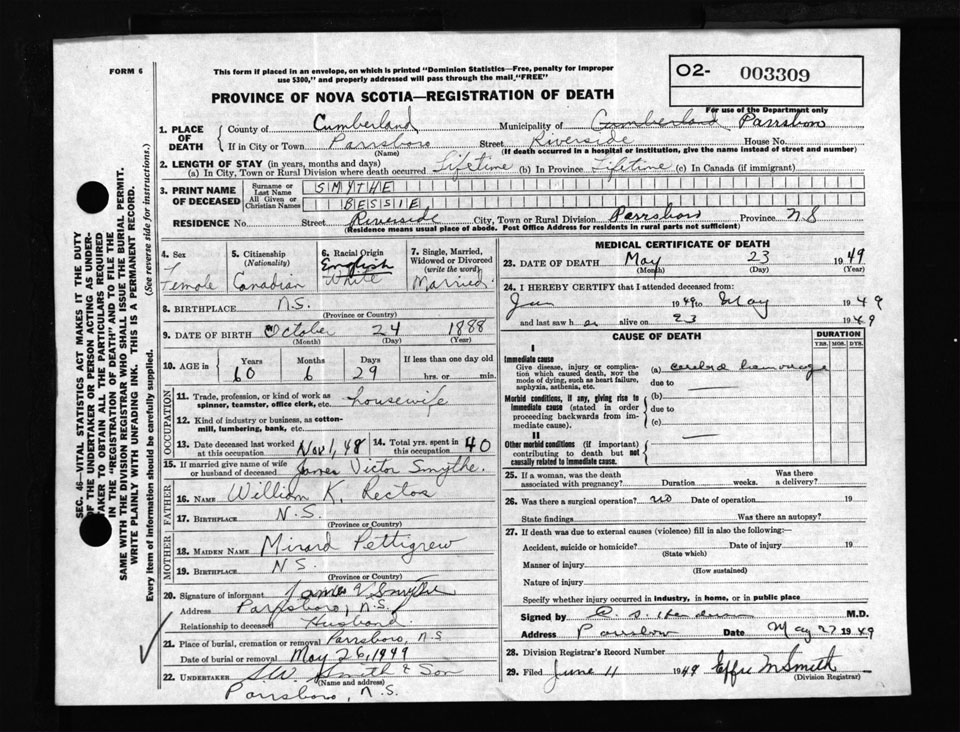 FORM 6
This form if placed in an envelope, on which is printed "Dominion Statistics—Free, penalty for improper
use $300," and properly addressed will pass through the mail "FREE"
O2- 003309
For use of the Department only
PROVINCE OF NOVA SCOTIA—REGISTRATION OF DEATH
1. PLACE OF DEATH
County of Cumberland Municipality of Cumberland Parrsboro
If in City or Town Parrsboro Street Riverside House No.
(Name) (If death occurred in a hospital or institution, give the name instead of street and number)
2. LENGTH OF STAY (in years, months and days)
(a) In City, Town or Rural Division where death occurred Lifetime (b) In Province Lifetime (c) In Canada (if immigrant)
3. PRINT NAME OF DECEASED
Surname or Last Name SMYTHE
All Given or Christian Names BESSIE
RESIDENCE No. Street Riverside City, Town or Rural Division Parrsboro Province N.S
(Residence means usual place of abode. Post Office Address for residents in rural parts not sufficient)
4. Sex Female
5. Citizenship (Nationality) Canadian
6. Racial Origin English White
7. Single, Married, Widowed or Divorced (write the word) Married
8. BIRTHPLACE N.S.
(Province or Country)
9. DATE OF BIRTH October 24 1888
(Month) (Day) (Year)
10. AGE in Years Months Days If less than one day old
60 6 29 hrs. or min.
OCCUPATION
11. Trade, profession, or kind of work as
spinner, teamster, office clerk, etc. housewife
12. Kind of industry or business, as cotton-
mill, lumbering, bank, etc.
13. Date deceased last worked at this occupation Nov 1, 48
14. Total yrs. spent in this occupation 40
15. If married give name of wife
or husband of deceased James Victor Smythe.
FATHER
16. NAME William K.
17. BIRTHPLACE N.S.
(Province or Country)
MOTHER
18. MAIDEN NAME Pettigrew
19. BIRTHPLACE N.S.
(Province or Country)
20. Signature of informant James V. Smythe
Address Parrsboro, N.S.
Relationship to deceased Husband
21. Place of burial, cremation or removal Parrsboro, N.S
Date of burial or removal May 26, 1949
22. UNDERTAKER S.W. Smith & Son
(Name and address)
Parrsboro, N.S.
MEDICAL CERTIFICATE OF DEATH
23. DATE OF DEATH May 23 1949
(Month) (Day) (Year)
24. I HEREBY CERTIFY that I attended deceased from:
Jan 1949 to May 1949
and last saw h er alive on 23 1949
CAUSE OF DEATH
DURATION
YRS. MOS. DYS.
I
Immediate cause
Give disease, injury or complica-
tion which caused death, NOT the
mode of dying, such as heart failure,
asphyxia, asthenia, etc.
(a) cerebral hemorrhage
due to
Morbid conditions, if any, giving rise to
immediate cause (stated in order
proceeding backwards from im-
mediate cause).
(b)
due to
(c)
II
Other morbid conditions (if important)
contributing to death but not
causally related to immediate cause.
25. If a woman, was the death
associated with pregnancy? Duration weeks. Was there
a delivery?
26. Was there a surgical operation? no Date of operation 19
State findings Was there an autopsy?
27. If death was due to external causes (violence) fill in also the following:—
Accident, suicide or homicide? Date of injury 19
(State which)
Manner of injury
(How sustained)
Nature of injury
Specify whether injury occurred in industry, in home, or in public place
Signed by M.D.
Address Parrsboro Date May 27 1949
28. Division Registrar's Record Number
29. Filed June 11 1949 Effie M Smith
(Division Registrar)
SEC. 46—VITAL STATISTICS ACT MAKES IT THE DUTY
OF THE UNDERTAKER OR PERSON ACTING AS UNDER-
TAKER TO OBTAIN ALL THE PARTICULARS REQUIRED
IN THE "REGISTRATION OF DEATH" AND TO FILE THE
SAME WITH THE DIVISION REGISTRAR WHO SHALL ISSUE THE BURIAL PERMIT.
WRITE PLAINLY WITH UNFADING INK. THIS IS A PERMANENT RECORD.
Every item of information should be carefully supplied. (See reverse side for instructions.)